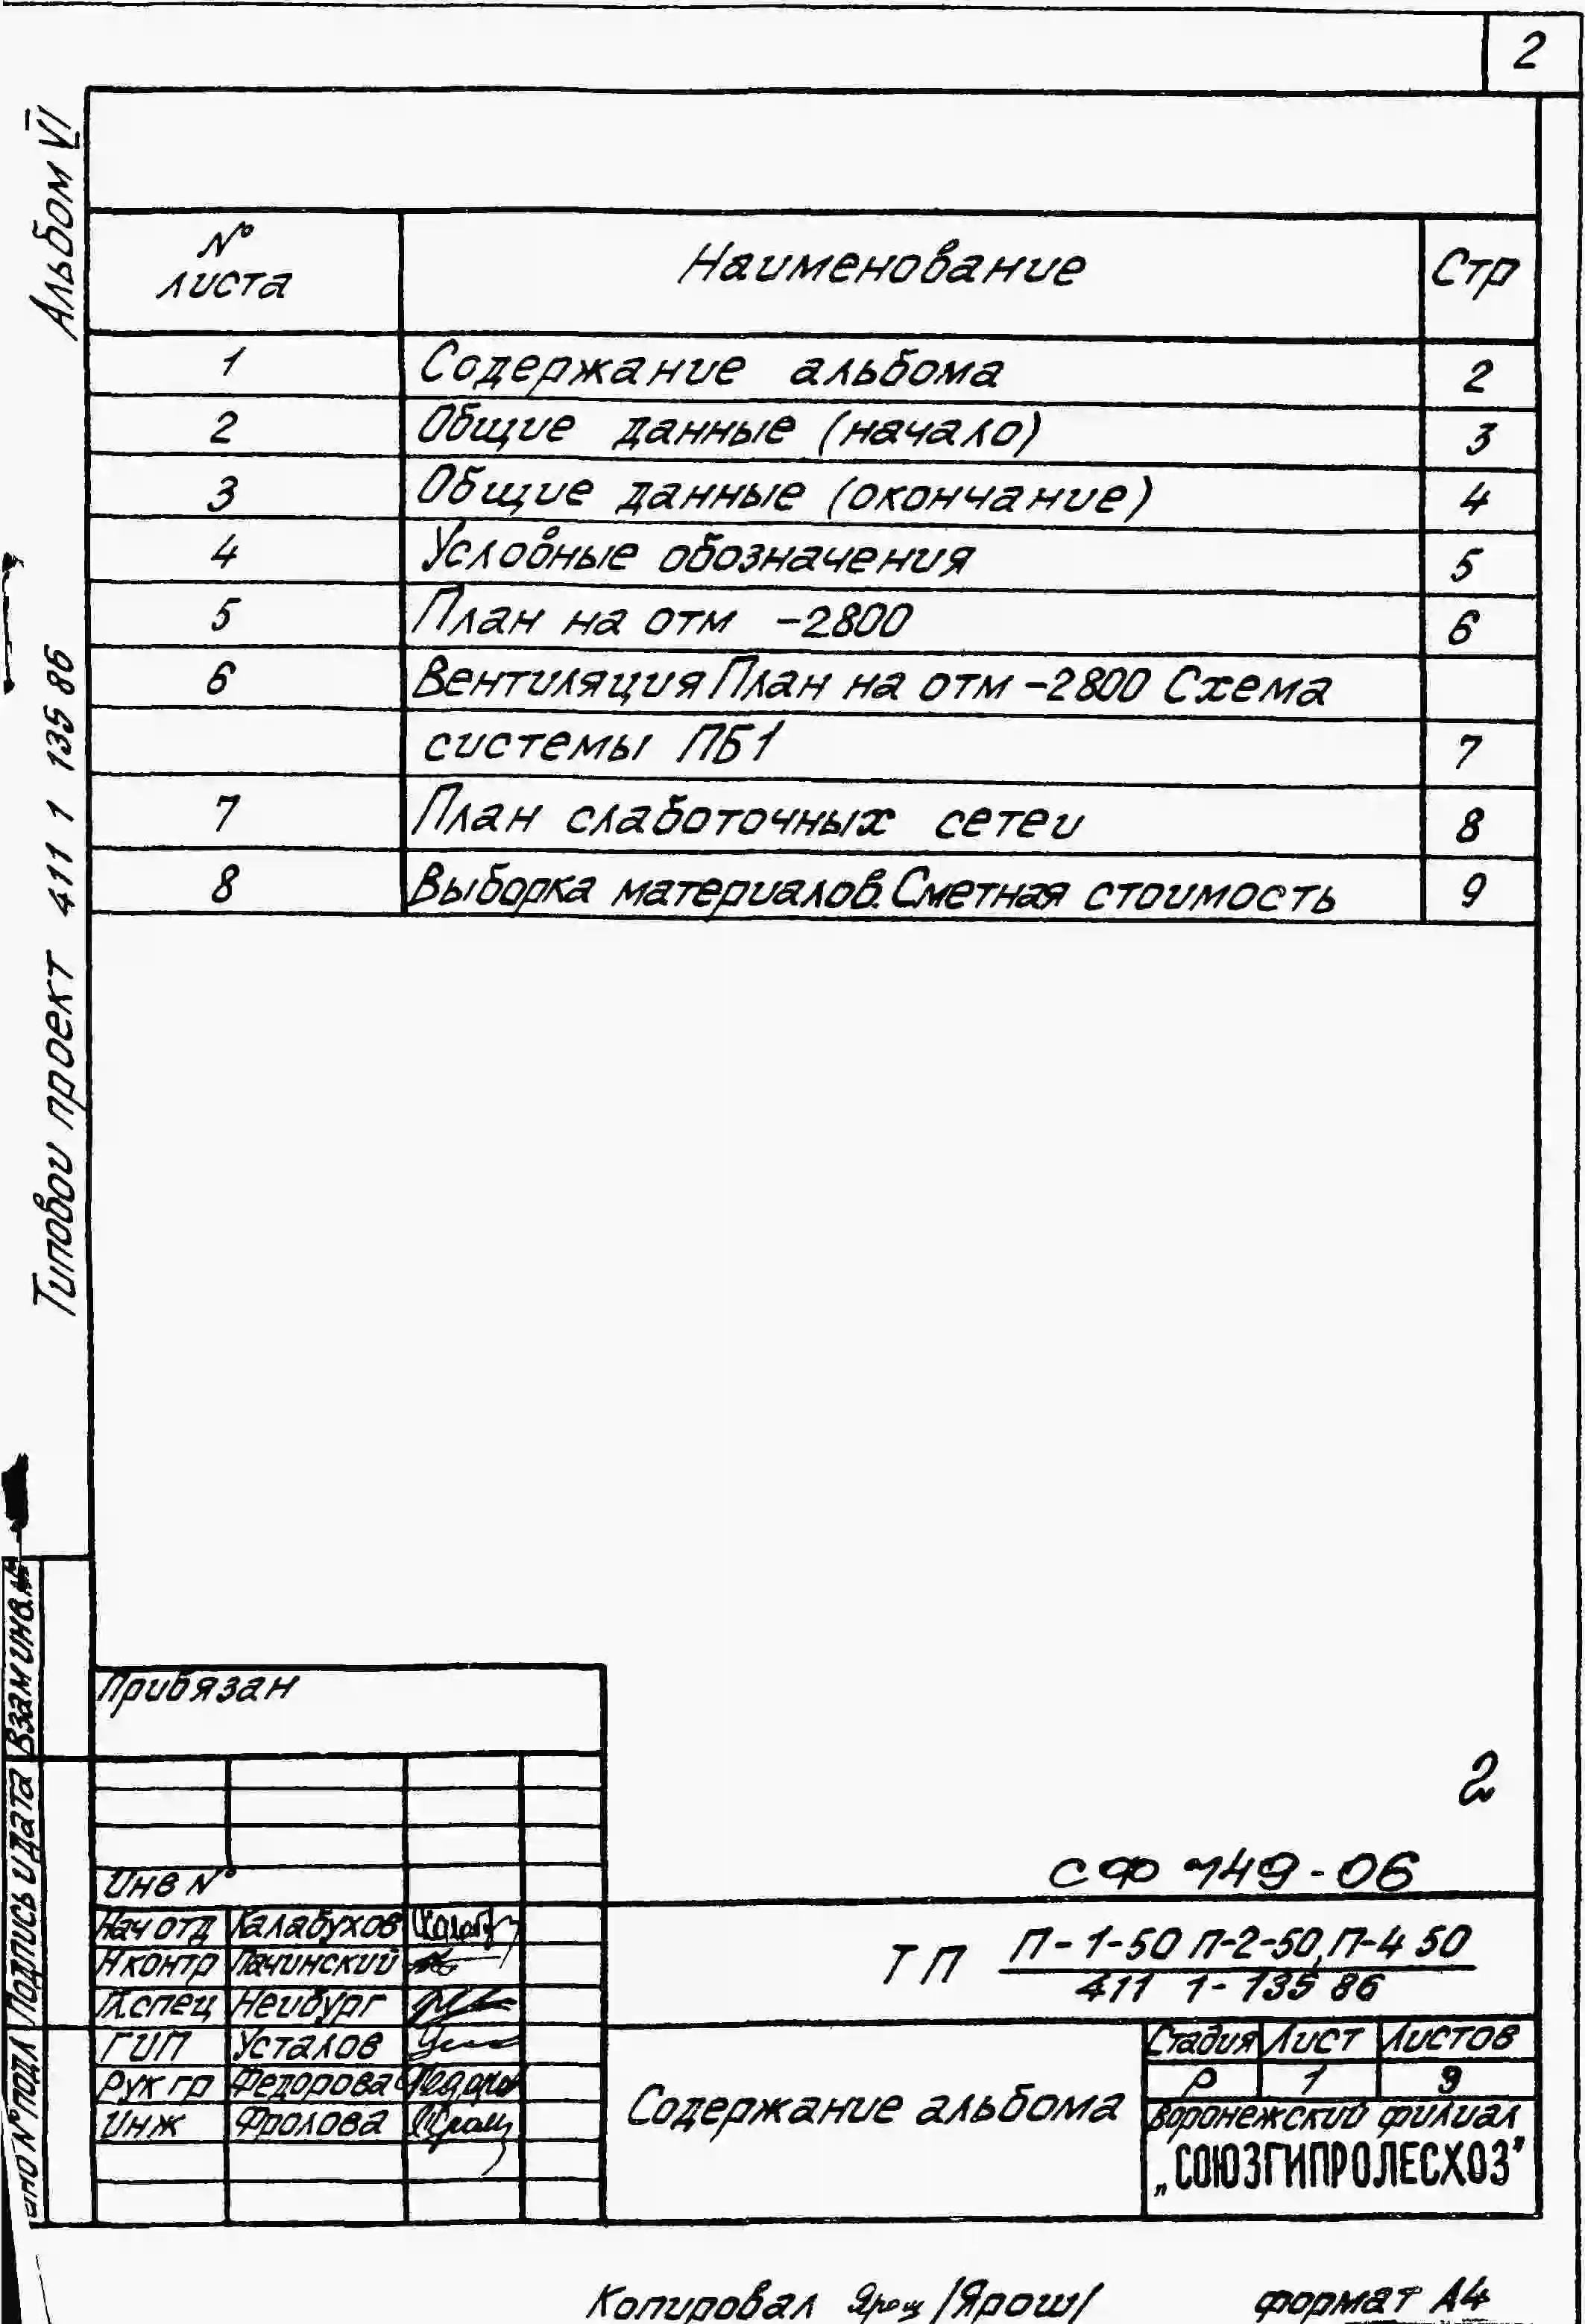 2
Альбом VI
№ листа Наименование Стр
1 Содержание альбома 2
2 Общие данные (начало) 3
3 Общие данные (окончание) 4
4 Условные обозначения 5
5 План на отм -2800 6
6 Вентиляция План на отм -2800 Схема
системы ПБ1 7
7 План слаботочных сетеи 8
8 Выборка материалов. Сметная стоимость 9
Типовои проект 411 1 135 86
Взам инв.№
Подпись и дата
№ подл
Привязан
Инв №
Нач отд Калабухов
Н контр Пачинский
Гл.спец Неибург
ГИП Усталов
Рук гр Федорова
Инж Фролова
2
СФ 749-06
ТП П-1-50 П-2-50, П-4 50
411 1-135 86
Содержание альбома
Стадия Лист Листов
Р 1 9
Воронежский филиал
„СОЮЗГИПРОЛЕСХОЗ"
Копировал Ярош /Ярош/ формат А4